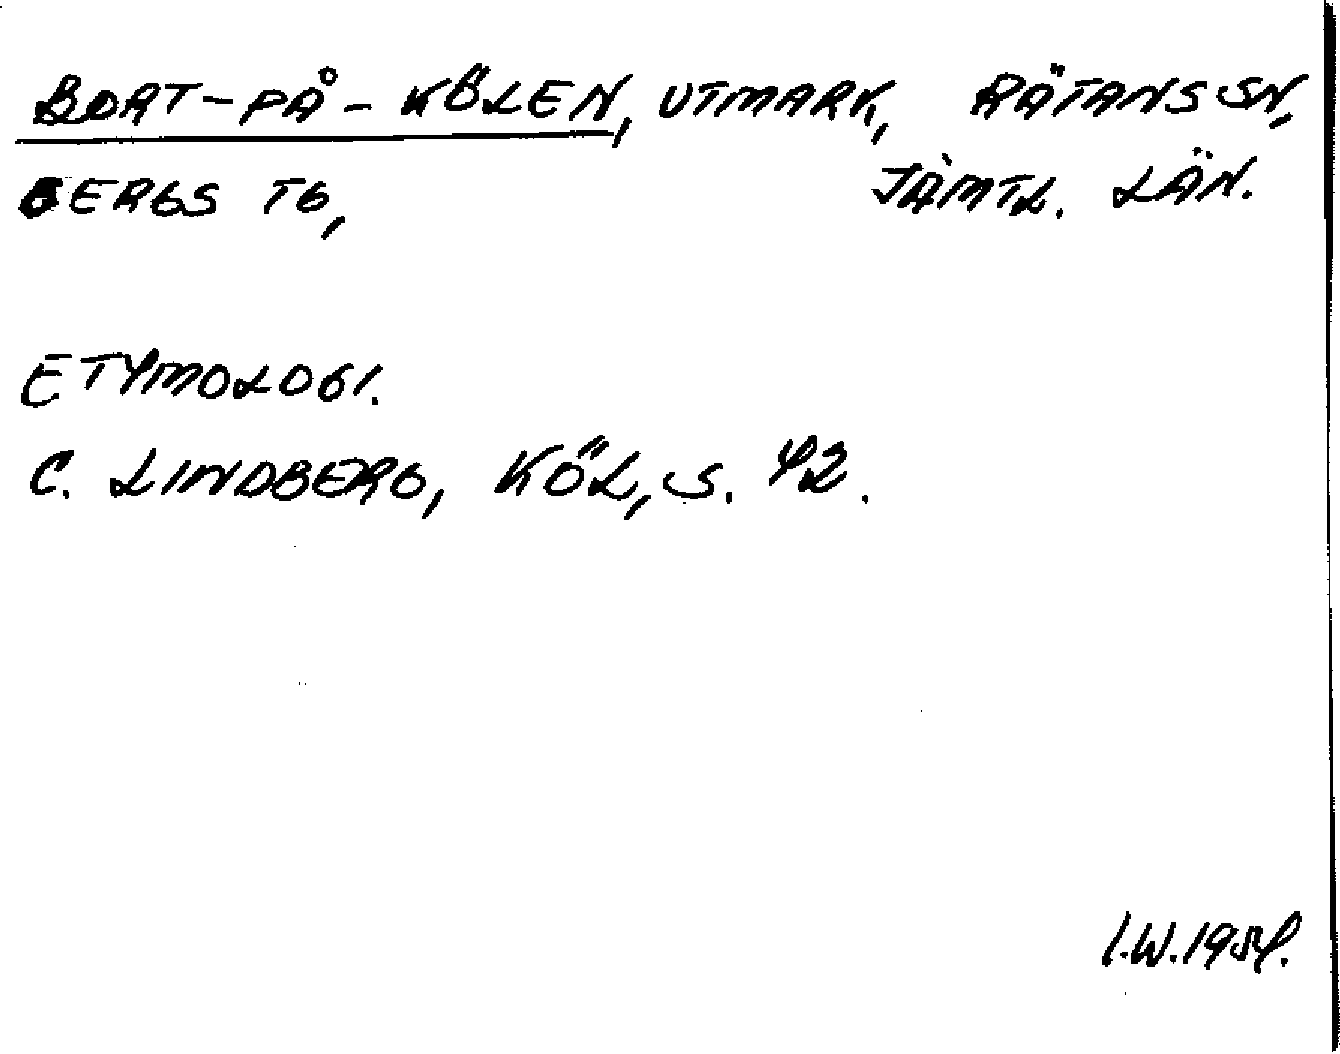 BORT-PÅ-KÖLEN, UTMARK, RÄTANS SN,
BERGS TG, JÄMTL. LÄN.
ETYMOLOGI.
C. LINDBERG, KÖL, S. 42.
I.W. 1954.